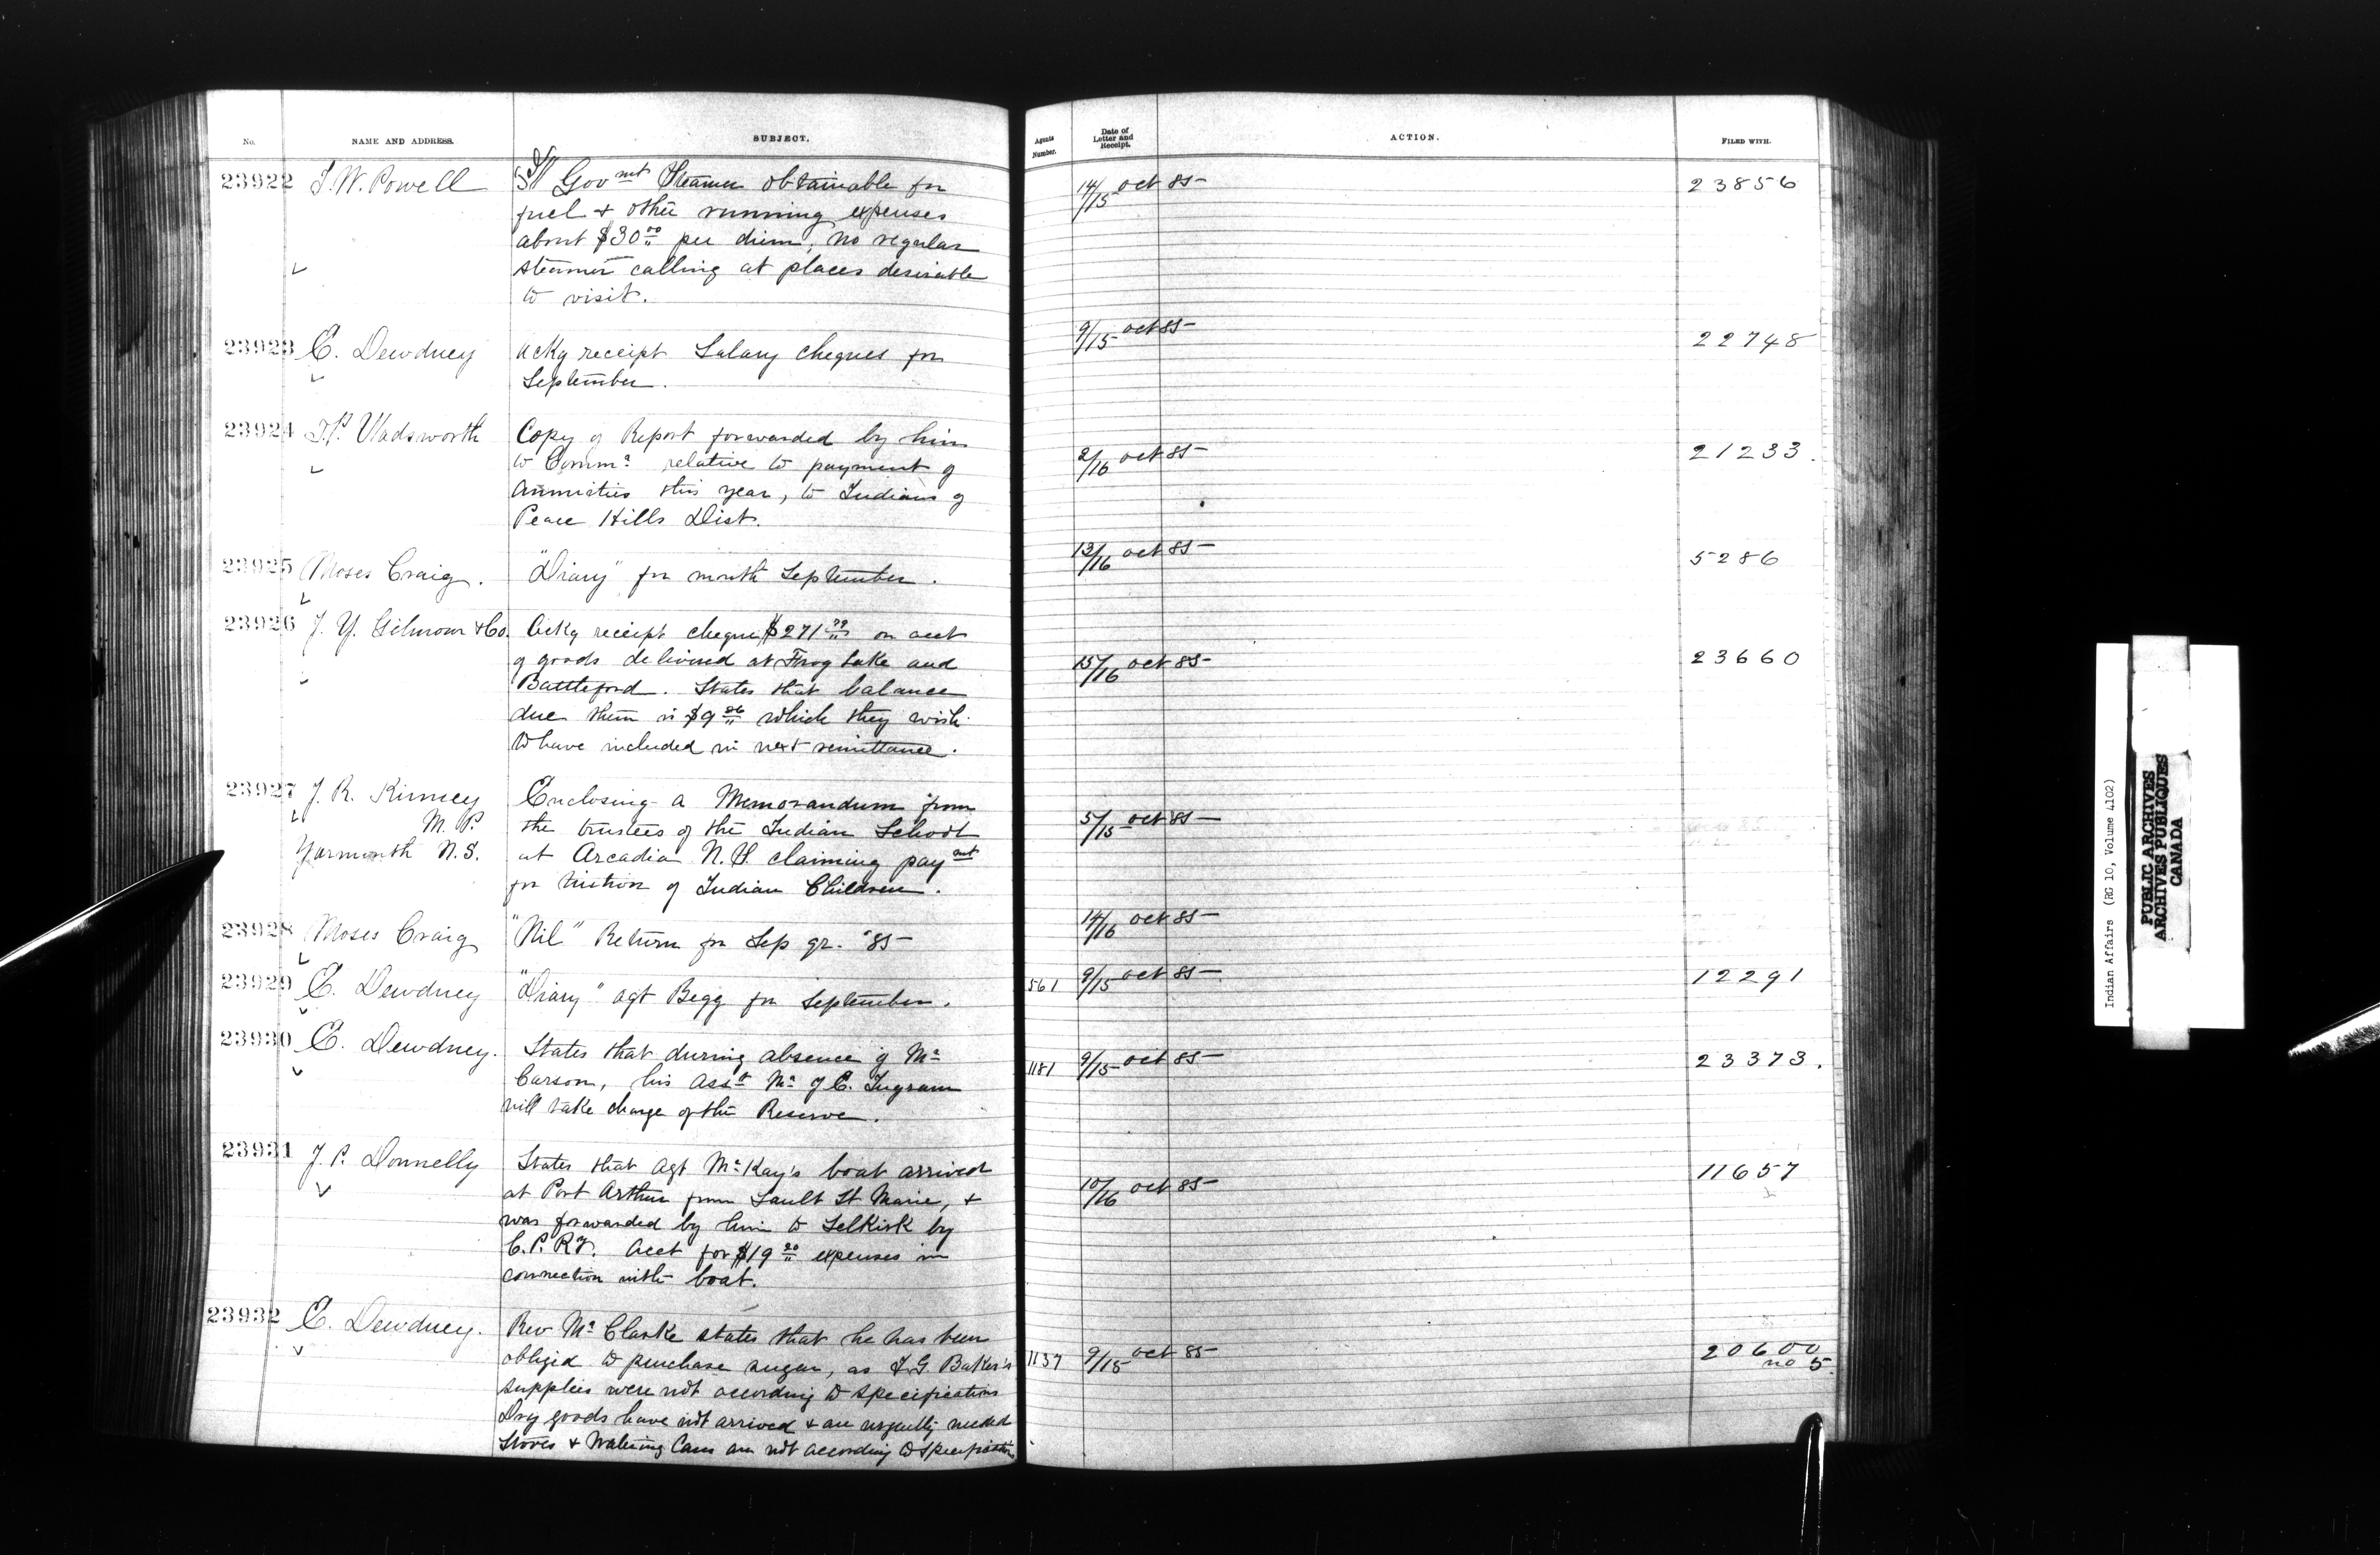 No. NAME AND ADDRESS. SUBJECT. Agents Number. Date of Letter and Receipt. ACTION. FILED WITH.
23922 I. W. Powell Govmt Steamer obtainable for 14/15 oct 85 23856
fuel & other running expenses
about $30.00 per diem, no regular
steamer calling at places desirable
to visit.
23923 E. Dewdney Ackg receipt Salary cheques for 9/15 oct 85 22748
September.
23924 T.P. Wadsworth Copy of Report forwarded by him
to Commr relative to payment of 2/16 oct 85 21233.
Annuities this year, to Indians of
Peace Hills Dist.
23925 Moses Craig. "Diary" for month September. 13/16 oct 85 5286
23926 J. Y. Gilmour & Co. Ackg receipt cheque $271.99 on acct
of goods delivered at Frog Lake and 15/16 oct 85 23660
Battleford. States that balance
due them is $9.26 which they wish
to have included in next remittance.
23927 J. R. Kinney Enclosing a Memorandum from
M. P. the trustees of the Indian School 5/15 oct 85
Yarmouth N.S. at Arcadia N.S. claiming paymt
for tuition of Indian Children.
23928 Moses Craig "Nil" Return for Sep qr. "85 14/16 oct 85
23929 E. Dewdney "Diary" agt Begg for September. 561 9/15 oct 85 12291
23930 E. Dewdney. States that during absence of Mr
Carson, his Asst Mr J C. Ingram 1181 9/15 oct 85 23373.
will take charge of the Reserve.
23931 J. P. Donnelly States that Agt McKay's boat arrived 11657
at Port Arthur from Sault St Marie, & 10/16 oct 85
was forwarded by him to Selkirk by
C. P. Ry. Acct for $19.20 expenses in
connection with boat.
23932 E. Dewdney. Rev Mr Clarke states that he has been
obliged to purchase sugar, as I. G. Baker's 1137 9/15 oct 85 20600
no 5.
supplies were not according to specifications
Dry goods have not arrived & are urgently needed
Stoves & Watering Cans are not according to specification
Indian Affairs (RG 10, Volume 4102)
PUBLIC ARCHIVES
ARCHIVES PUBLIQUES
CANADA